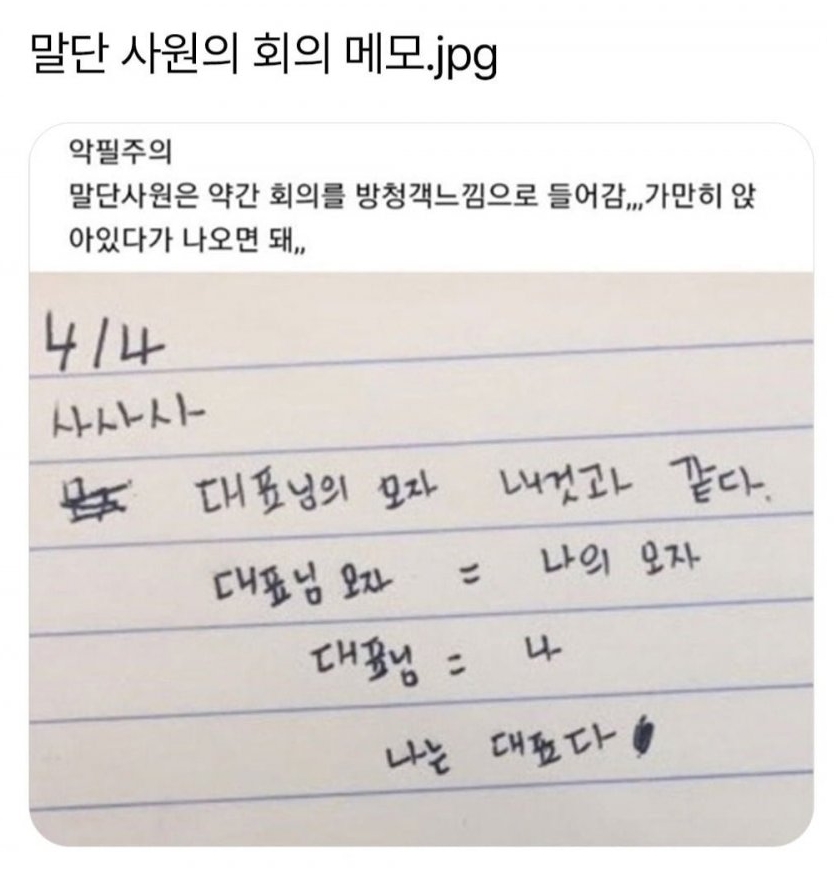 말단 사원의 회의 메모.jpg
악필주의
말단사원은 약간 회의를 방청객느낌으로 들어감,,,가만히 앉
아있다가 나오면 돼,,
4/4
사사사
대표님의 모자 내것과 같다.
대표님 모자 = 나의 모자
대표님 = 나
나는 대표다